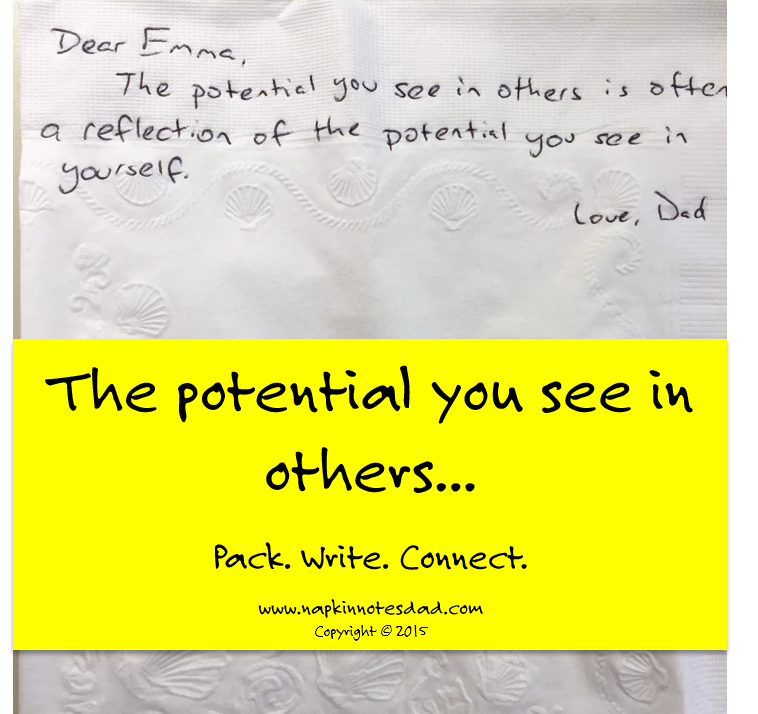 Dear Emma,
The potential you see in others is often
a reflection of the potential you see in
yourself.
Love, Dad
The potential you see in
others...
Pack. Write. Connect.
www.napkinnotesdad.com
Copyright © 2015